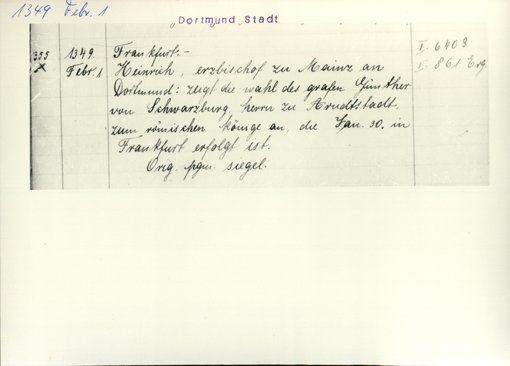 1349 Febr. 1
Dortmund Stadt
355 1349 Frankfurt.- I. 6403
X Febr. 1 Heinrich, erzbischof zu Mainz an I. 861 Erg.
Dortmund: zeigt die wahl des grafen Günther
von Schwarzburg, herrn zu Arndtstadt,
zum römischen könige an, die Jan. 30. in
Frankfurt erfolgt ist.
Orig. pgm. siegel.